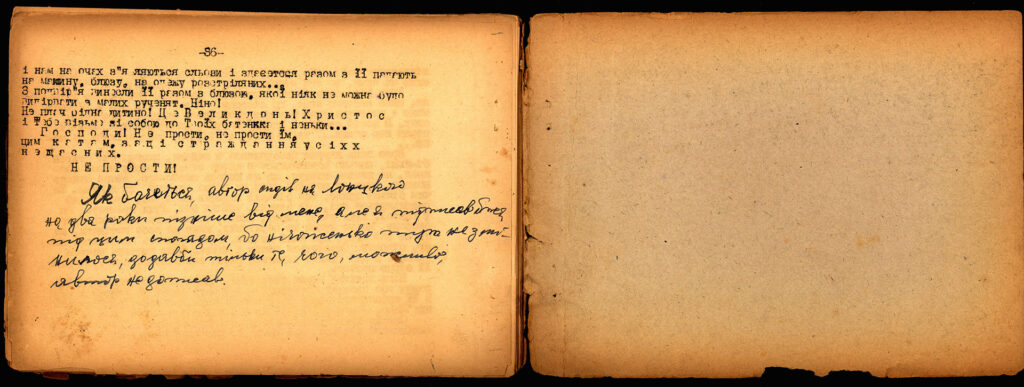 -36-
і нам на очах з"я ляються сльози і здається разом з ІІ падають
на машину, блюзу, на одежу розстріляних...
З подвір"я винесли ІІ разом з блюзою, якої ніяк не можна було
видірвати з малих рученят. Ніно!
Не плач рідна дитино! Ц е В е л и к д о н ь! Х р и с т о с
і Тебе візьме зі собою до Твоїх батенька і неньки...
Г о с п о д и! Н е прости, не прости їм,
цим к а т а м, з а ц і с т р а ж д а н н я у с і х х
н е щ а с н и х.
Н Е П Р О С Т И !
Як бачиться, автор сидів на Лонцкого
на два роки пізніше від мене, але я підписав би ся
під цим спогадом, бо нічогісенько там не змі-
нилося, додавби тільки те, чого, можливо,
автор не дописав.